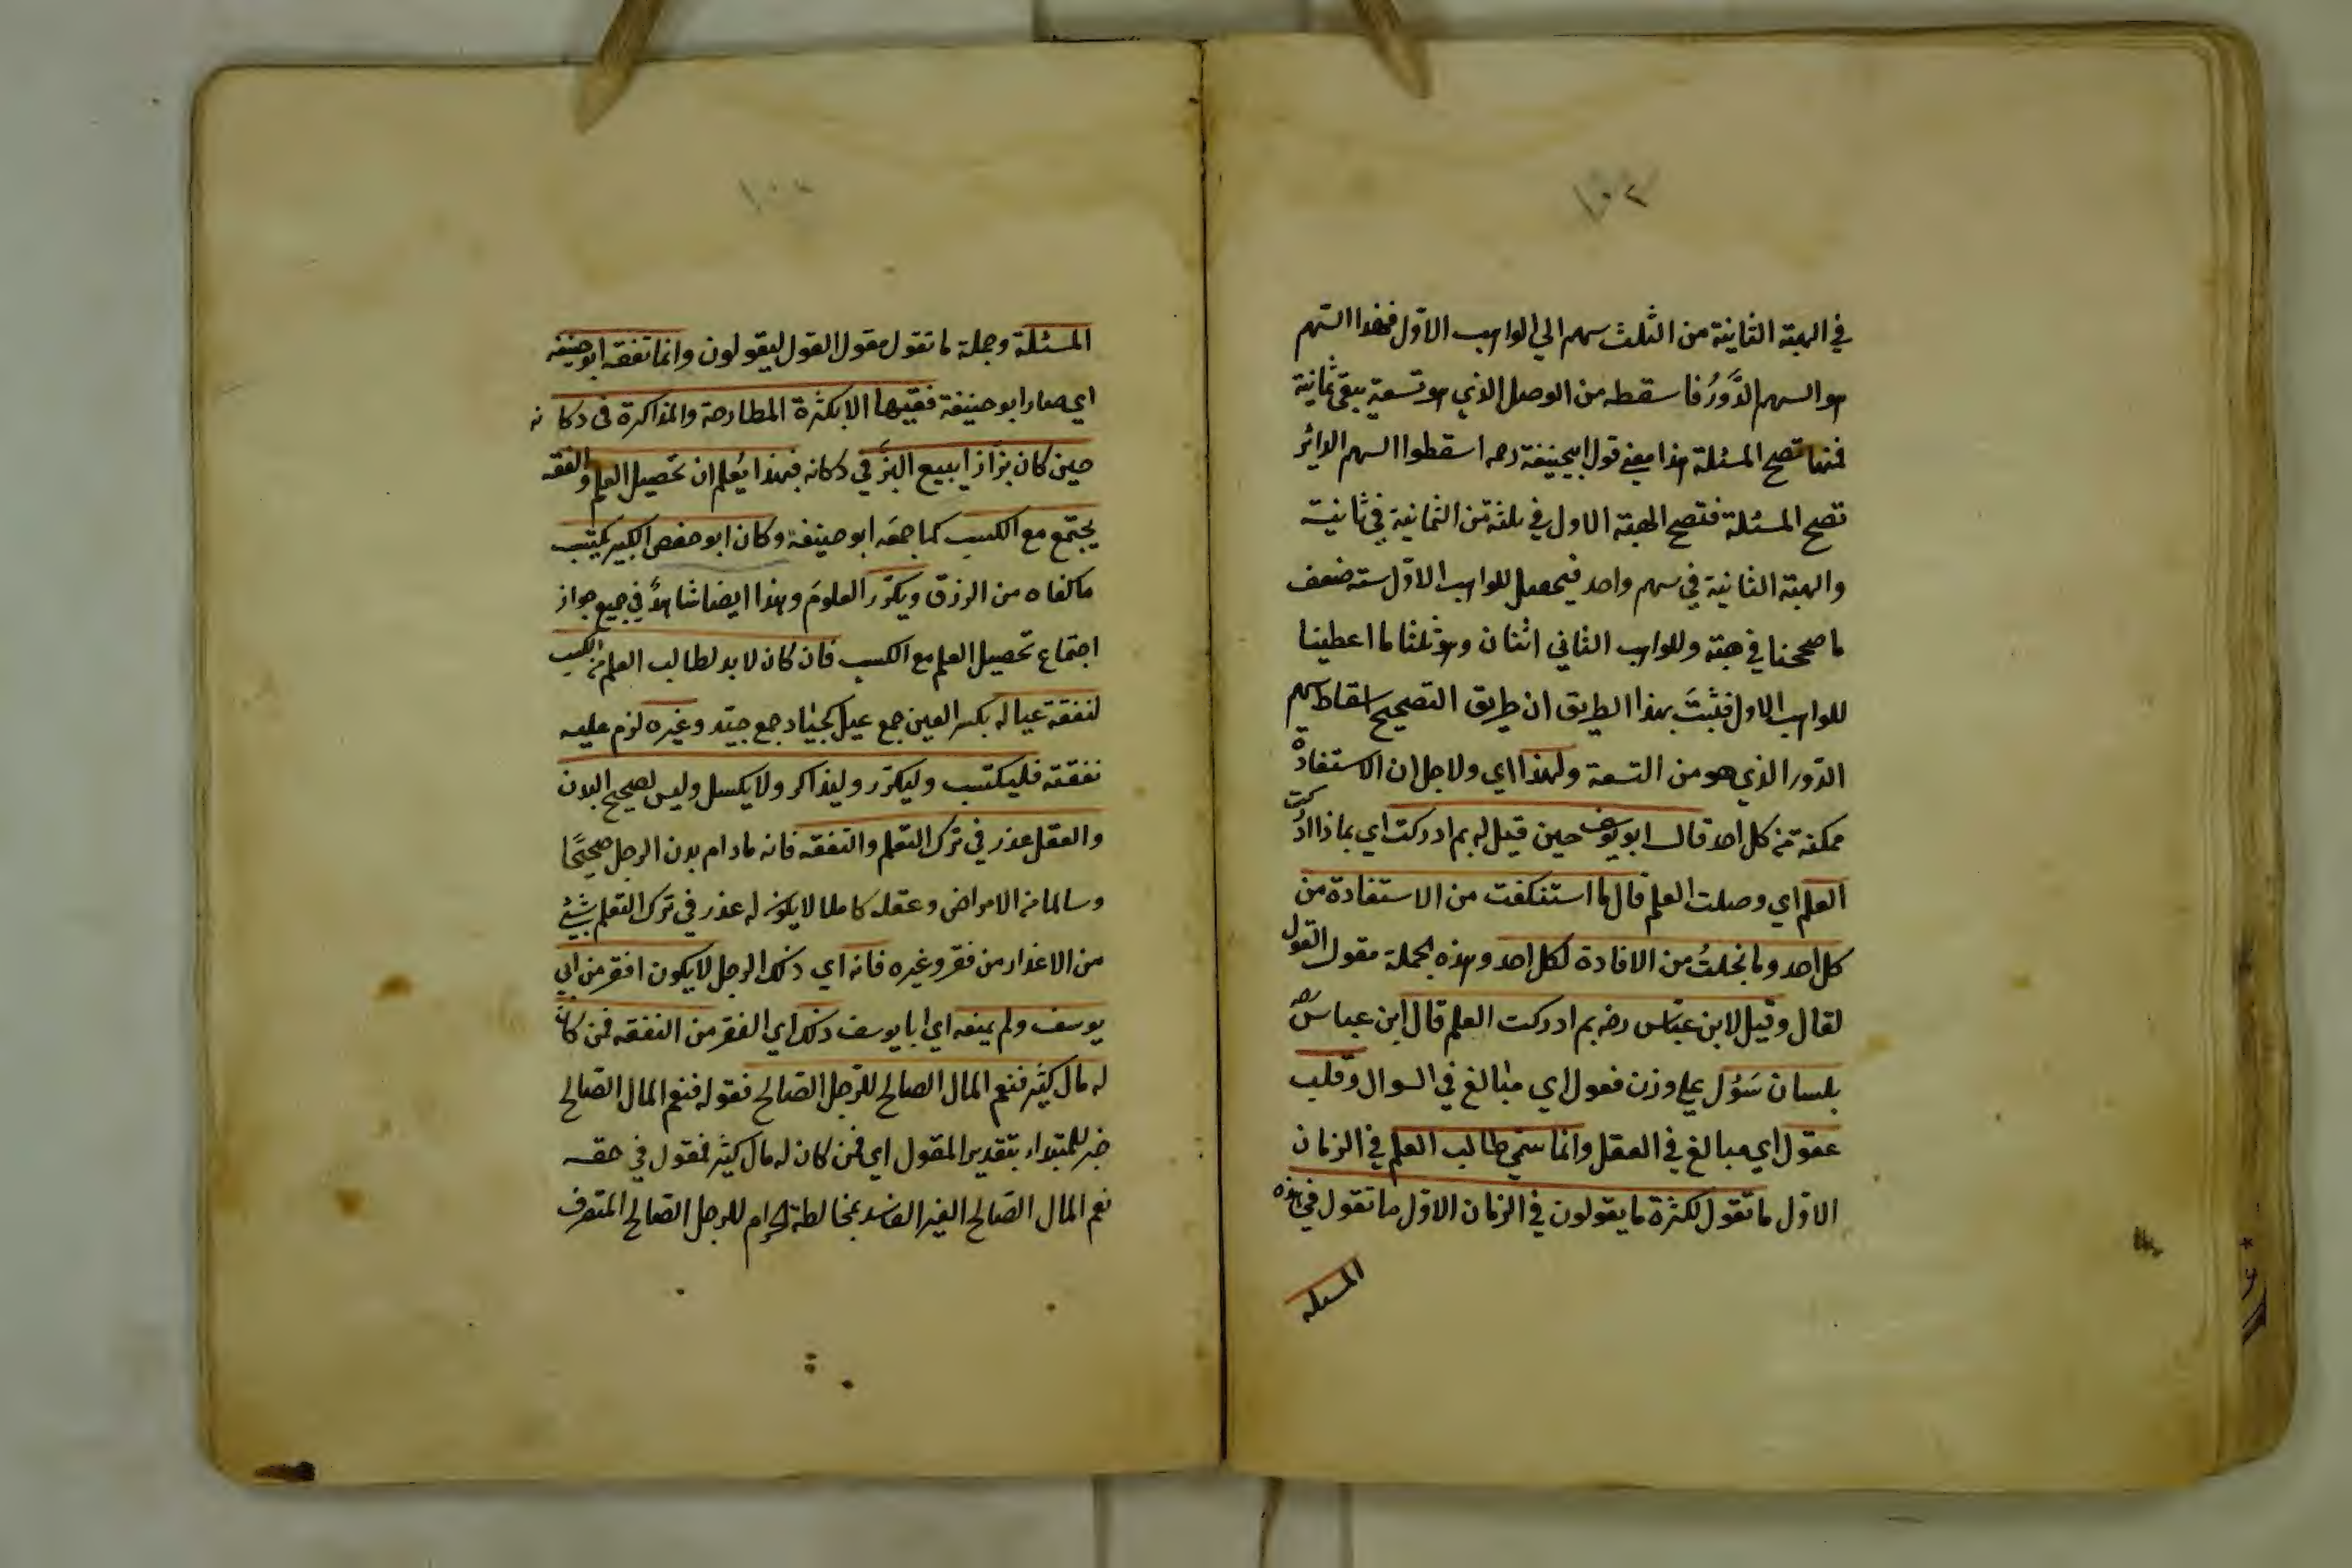 ١٠٢
في الهبة الثانية من الثلث سهم الي الواهب الاول فهذا السهم
هو السهم الدَّورُ فاسقطه من الوصل الذي هو تسعة يبقى ثمانية
فمنها تصح المسئلة هذا معنى قول ابيحنيفة رحه اسقطوا السهم الدائر
تصح المسئلة فتصح الهبة الاول في ثلثة من الثمانية في ثانية
والهبة الثانية في سهم واحد فيحصل للواهب الاول ستة ضعف
ما صححنا في هبته وللواهب الثاني اثنان وهو ثلثا ما اعطينا
للواهب الاول فثبتَ بهذا الطريق ان طريق التصحيح اسقاط سهم
الدّور الذي هو من التسعة ولهذا اي ولاجل ان الاستفادة
ممكنة من كل احد قال ابو يوسف حين قيل له بم ادركت اي بماذا ادركت
العلم اي وصلت العلم قال ما استنكفت من الاستفادة من
كل احد وما بخلتُ من الافادة لكل احد وهذه الجملة مقول القول
لقال وقيل لابن عبّاس رضه بم ادركت العلم قال ابن عباس رضه
بلسان سَؤُل علي وزن فعول اي مبالغ في السوال وقلب
عقول اي مبالغ في العقل وانما سمّي طالب العلم في الزمان
الاوّل ما تقول لكثرة ما يقولون في الزمان الاوّل ما تقول في هذه
المسئله
١٠٣
المسئلة وجملة ما تقول مقول القول ليقولون وانما تفقه ابو حنيفه
اي صار ابو حنيفة فقيها الا بكثرة المطارحة والمذاكرة في دكانه
حين كان بزّازا يبيع البزَّ في دكانه فبهذا يُعلم ان تحصيل العلم والفقه
يجتمع مع الكسب كما جمعَه ابو حنيفة وكان ابو حفص الكبير يكتسب
ما كفاه من الرزق ويكرّر العلومَ وهذا ايضا شاهدٌ في جميع جواز
اجتماع تحصيل العلم مع الكسب فان كان لا بد لطالب العلم من الكسب
لنفقة عياله بكسر العين جمع عيل كجياد جمع جيّد وغيره لزم عليه
نفقته فليكتسب وليكرّر وليذاكر ولا يكسل وليس لصحيح البدن
والعقل عذر في ترك التعلم والتفقه فانه مادام بدن الرجل صحيحًا
وسالما من الامراض وعقله كاملا لا يكون له عذر في ترك التعلم بشئ
من الاعذار من فقر وغيره فانه اي ذلك الرجل لا يكون افقر من ابي
يوسف ولم يمنعه اي ابا يوسف ذلك اي الفقر من التفقه فمن كان
له مال كثير فنعم المال الصالح للرّجل الصّالح فقوله فنعم المال الصّالح
خبر للمبتداء بتقدير المقول اي فمن كان له مال كثير فمقول في حقه
نعم المال الصّالح الغير الفاسد بمخالطة الحرام للرجل الصّالح المتصرف